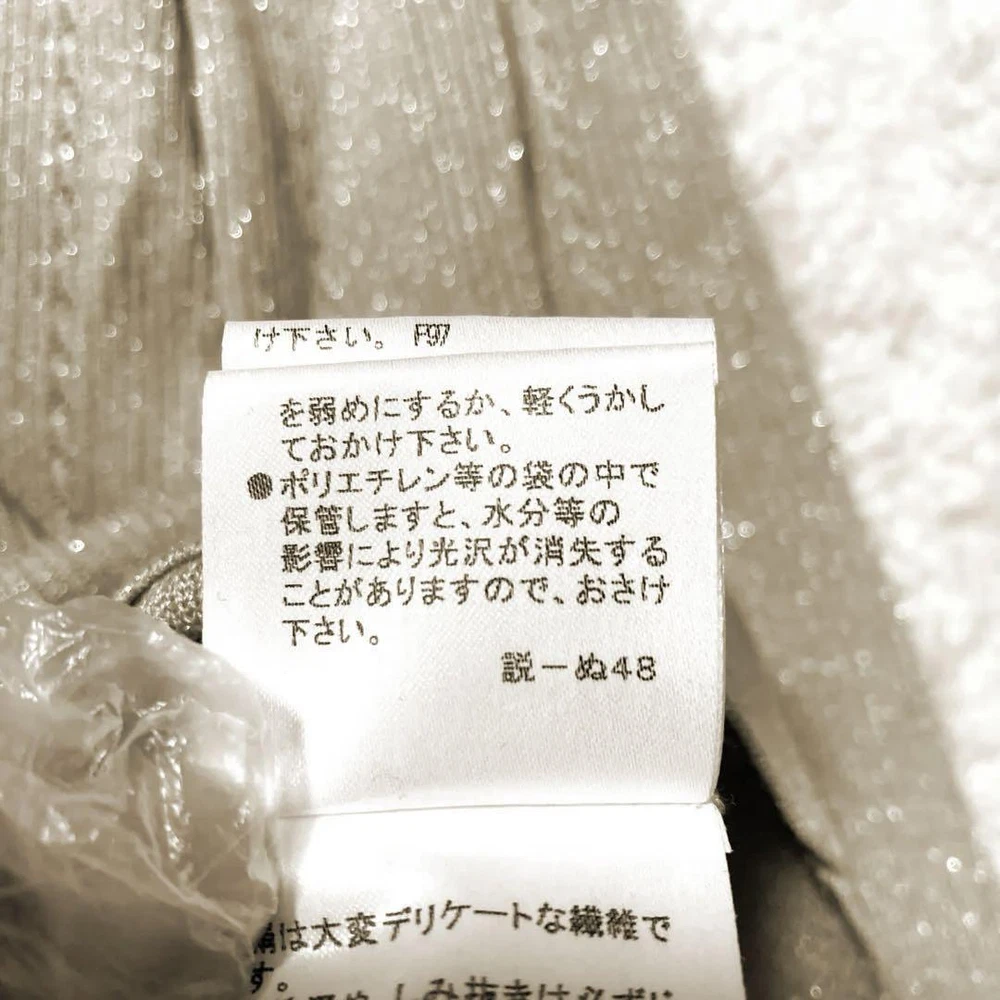 け下さい。 F97
を弱めにするか、軽くうかし
ておかけ下さい。
●ポリエチレン等の袋の中で
保管しますと、水分等の
影響により光沢が消失する
ことがありますので、おさけ
下さい。
説－ぬ48
は大変デリケートな繊維で
す。
しみ抜きは必ず